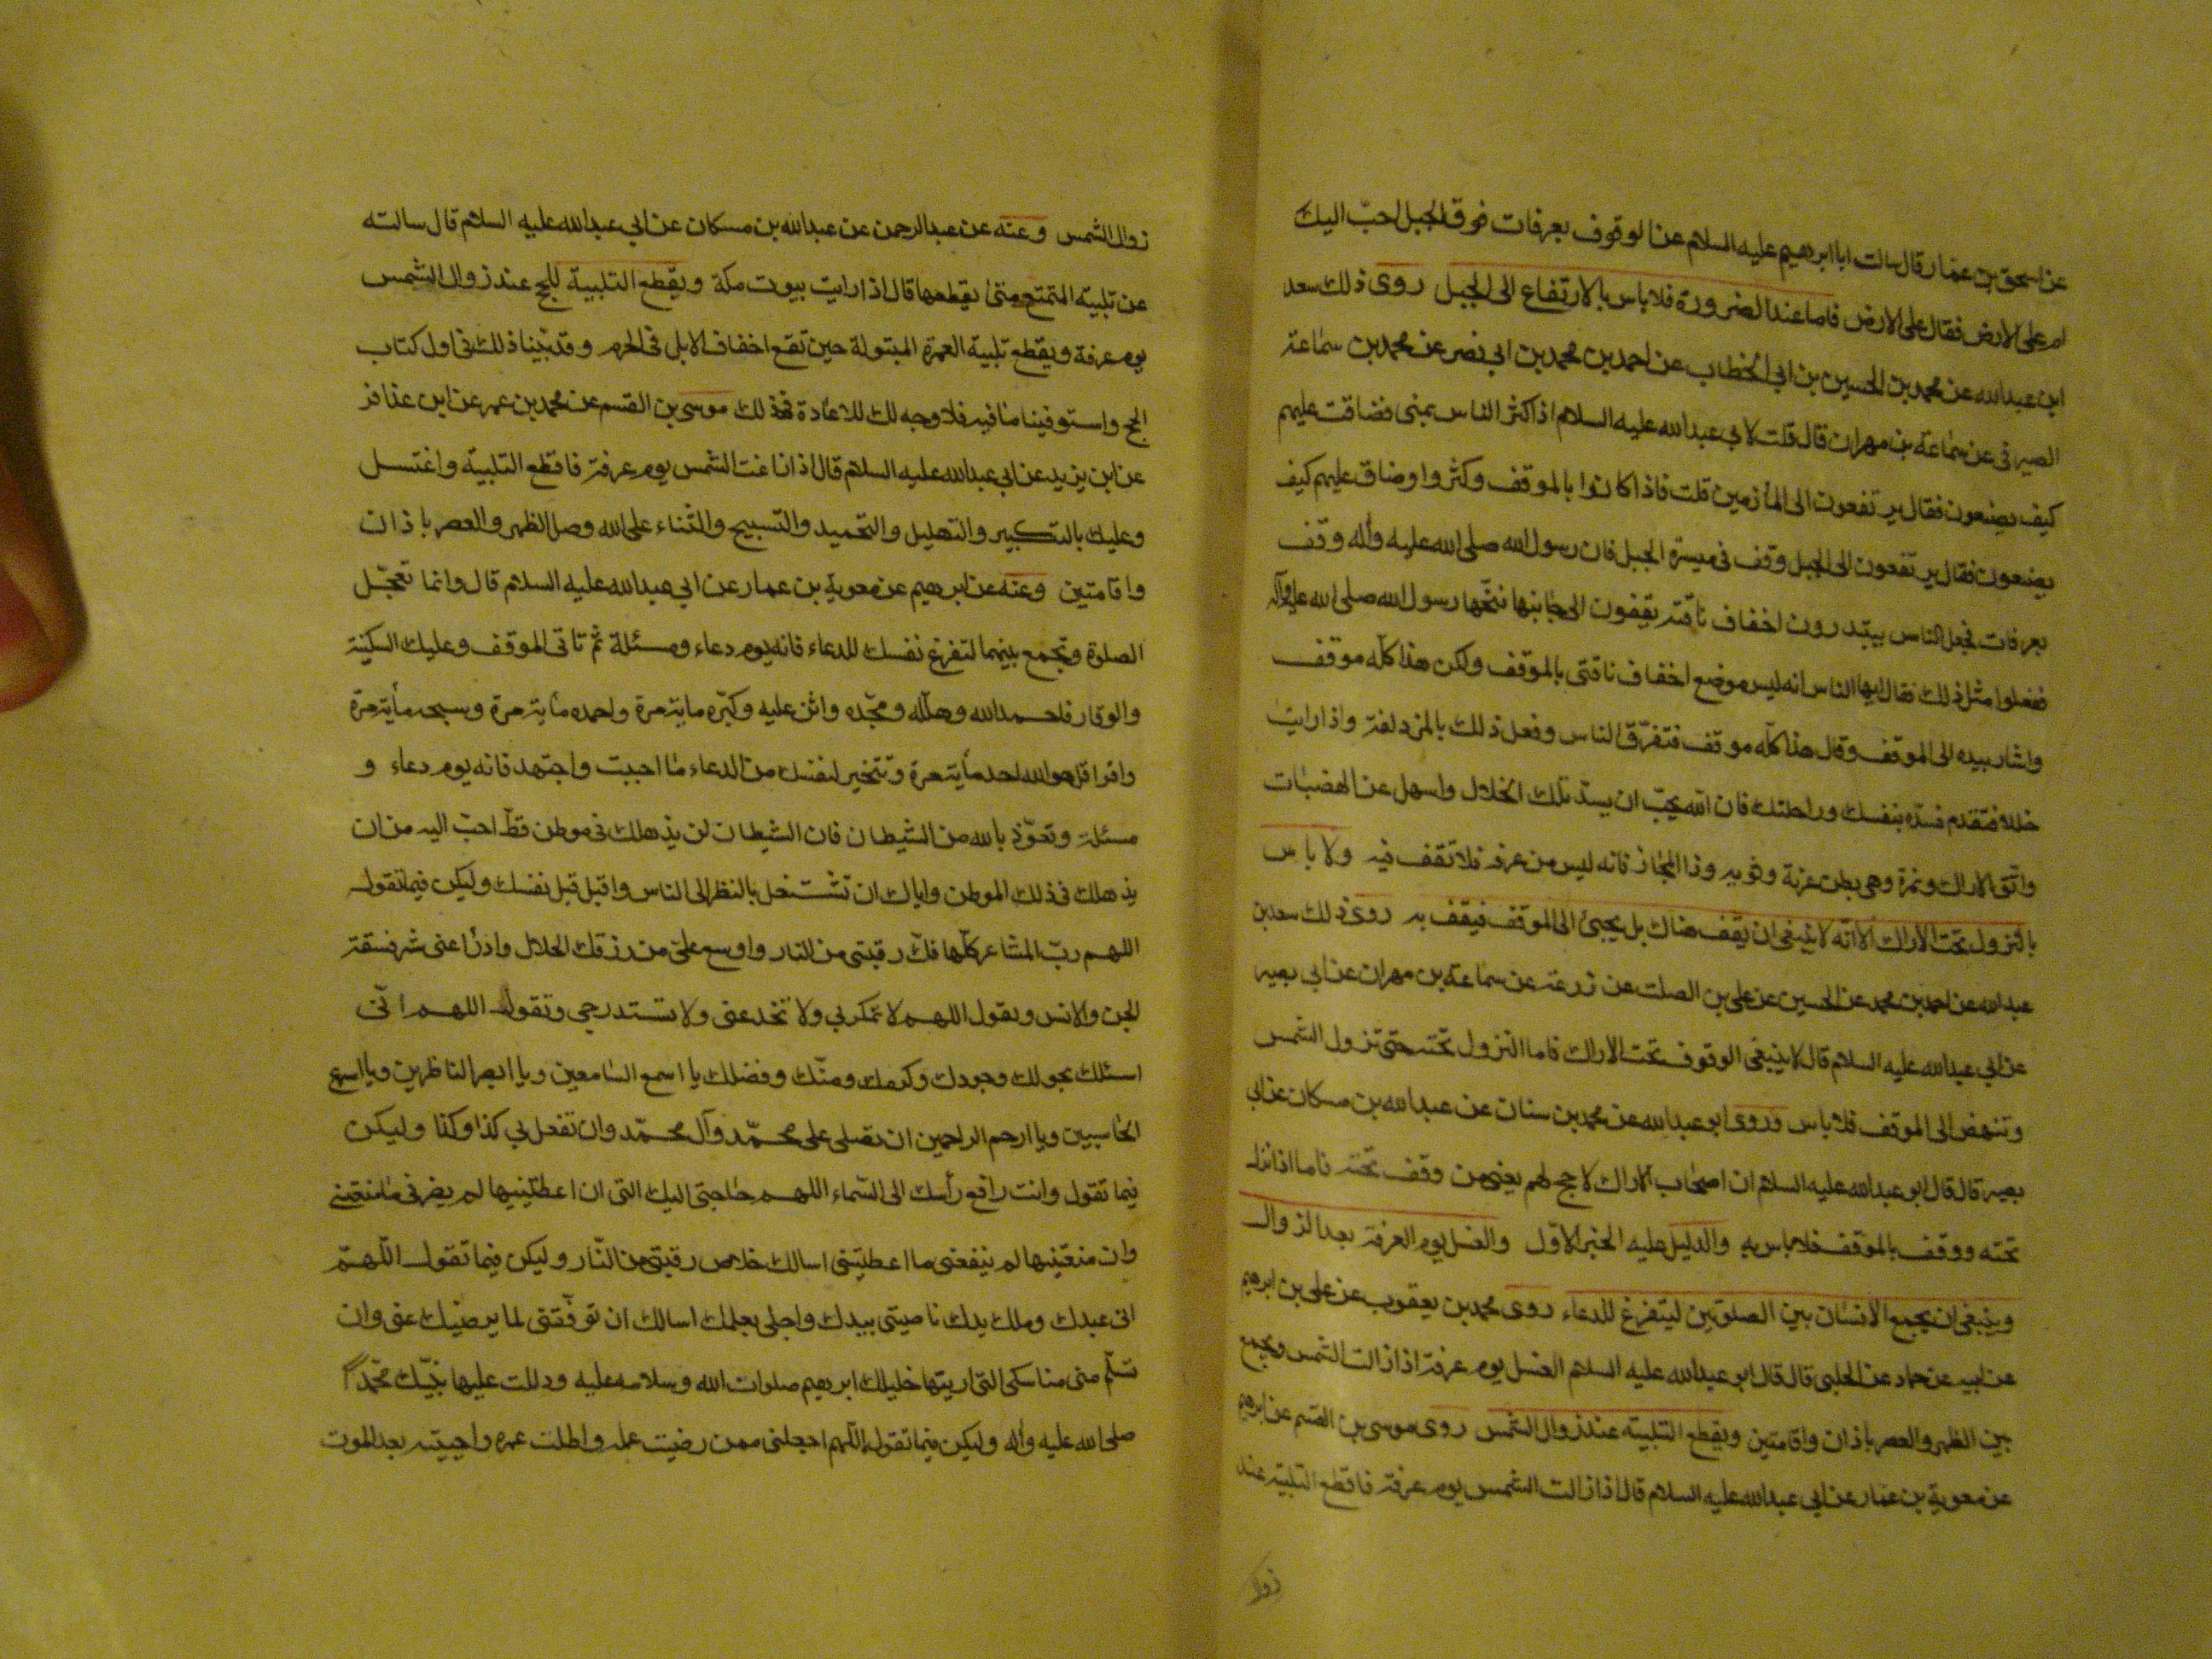 عن اسحق بن عمار قال سالت ابا ابرهيم عليه السلام عن الوقوف بعرفات فوق الجبل احبّ اليك
ام على الارض فقال على الارض فاما عند الضرورة فلا باس بالارتفاع الى الجبل روى ذلك سعد
ابن عبد الله عن محمد بن الحسين بن ابي الخطاب عن احمد بن محمد بن ابي نصر عن محمد بن سماعة
الصيرفي عن سماعة بن مهران قال قلت لابي عبد الله عليه السلام اذا كثر الناس بمنى فضاقت عليهم
كيف يصنعون فقال يرتفعون الى المأزمين قلت فاذا كانوا بالموقف وكثروا وضاق عليهم كيف
يصنعون فقال يرتفعون الى الجبل وقف في ميسرة الجبل فان رسول الله صلى الله عليه وآله وقف
بعرفات فجعل الناس يبتدرون اخفاف ناقته يقفون الى جانبها فنحّها رسول الله صلى الله عليه وآله
ففعلوا مثل ذلك فقال ايها الناس انه ليس موضع اخفاف ناقتي بالموقف ولكن هذا كلّه موقف
واشار بيده الى الموقف وقال هذا كلّه موقف فتفرّق الناس وفعل ذلك بالمزدلفة واذا رايت
خللا فتقدم فسدّه بنفسك وراحلتك فان الله يحبّ ان يسدّ تلك الخلال واسهل عن الهضبات
واتّق الاراك ونمرة وهي بطن عرنة وثويه وذا المجاز فانه ليس من عرفة فلا تقف فيه ولا باس
بالنزول تحت الاراك الّا انّه لا ينبغي ان يقف هناك بل يجيئ الى الموقف فيقف به روى ذلك سعد بن
عبد الله عن احمد بن محمد عن الحسين عن علي بن الصلت عن زرعة عن سماعة بن مهران عن ابي بصير
عن ابي عبد الله عليه السلام قال لا ينبغي الوقوف تحت الاراك فاما النزول تحته حتى تزول الشمس
وتنهض الى الموقف فلا باس وروى ابو عبد الله عن محمد بن سنان عن عبد الله بن مسكان عن ابي
بصير قال قال ابو عبد الله عليه السلام ان اصحاب الاراك لا حج لهم يعني من وقف تحته فاما اذا نزل
تحته ووقف بالموقف فلا باس به والدليل عليه الخبر الاوّل والغسل يوم العرفة بعد الزوال
وينبغي ان يجمع الانسان بين الصلوتين ليتفرغ للدعاء روى محمد بن يعقوب عن علي بن ابرهيم
عن ابيه عن حماد عن الحلبي قال قال ابو عبد الله عليه السلام الغسل يوم عرفة اذا زالت الشمس وتجمع
بين الظهر والعصر باذان واقامتين ويقطع التلبية عند زوال الشمس روى موسى بن القسم عن ابرهيم
عن معوية بن عمار عن ابي عبد الله عليه السلام قال اذا زالت الشمس يوم عرفة فاقطع التلبية عند
زوال
زوال الشمس وعنه عن عبد الرحمن عن عبد الله بن مسكان عن ابي عبد الله عليه السلام قال سالته
عن تلبية المتمتع متى يقطعها قال اذا رايت بيوت مكة ويقطع التلبية للحج عند زوال الشمس
يوم عرفة ويقطع تلبية العمرة المبتولة حين تقع اخفاف الابل في الحرم وقد بيّنا ذلك في اول كتاب
الحج واستوفينا ما فيه فلا وجه لك للاعادة فمن ذلك موسى بن القسم عن محمد بن عمر عن ابن عذافر
عن ابن يزيد عن ابي عبد الله عليه السلام قال اذا زاغت الشمس يوم عرفة فاقطع التلبية واغتسل
وعليك بالتكبير والتهليل والتحميد والتسبيح والثناء على الله وصل الظهر والعصر باذان
واقامتين وعنه عن ابرهيم عن معوية بن عمار عن ابي عبد الله عليه السلام قال وانما تعجّل
الصلوة وتجمع بينهما لتفرغ نفسك للدعاء فانه يوم دعاء ومسئلة ثم تاتى الموقف وعليك السكينة
والوقار فاحمد الله وهلّله ومجّده واثن عليه وكبّره مأية مرة واحمده مأية مرة وسبحه مأية مرة
واقرا قل هو الله احد مأية مرة وتتخير لنفسك من الدعاء ما احببت واجتهد فانه يوم دعاء و
مسئلة وتعوّذ بالله من الشيطان فان الشيطان لن يذهلك في موطن قطّ احبّ اليه من ان
يذهلك في ذلك الموطن واياك ان تشتغل بالنظر الى الناس واقبل قبل نفسك وليكن فيما تقول
اللهم ربّ المشاعر كلّها فكّ رقبتي من النار واوسع عليّ من رزقك الحلال وادرأ عني شر فسقة
الجن والانس ويقول اللهم لا تمكر بي ولا تخدعني ولا تستدرجي وتقول اللهم انّي
اسئلك بحولك وجودك وكرمك ومنّك وفضلك يا اسمع السامعين ويا ابصر الناظرين ويا اسرع
الحاسبين ويا ارحم الراحمين ان تصلى على محمّد وآل محمّد وان تفعل بي كذا وكذا وليكن
فيما تقول وانت رافع رأسك الى السّماء اللهم حاجتي اليك التي ان اعطيتنيها لم يضرني ما منعتني
وان منعتنيها لم ينفعني ما اعطيتني اسالك خلاص رقبتي من النّار وليكن فيما تقول اللّهمّ
اني عبدك وملك يدك ناصيتي بيدك واجلي بعلمك اسالك ان توفّقني لما يرضيك عني وان
تسلّم مني مناسكي التي اريتها خليلك ابرهيم صلوات الله وسلامه عليه ودللت عليها نبيّك محمّدا
صلى الله عليه وآله وليكن فيما تقول اللّهم اجعلني ممن رضيت عمله واطلت عمره واحييته بعد الموت